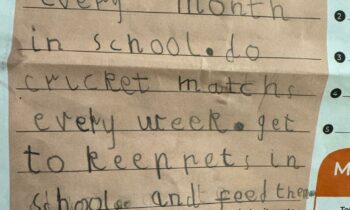 every month
in school. do
cricket matchs
every week. get
to keep pets in
school. and feed them.
2
3
4
5
M